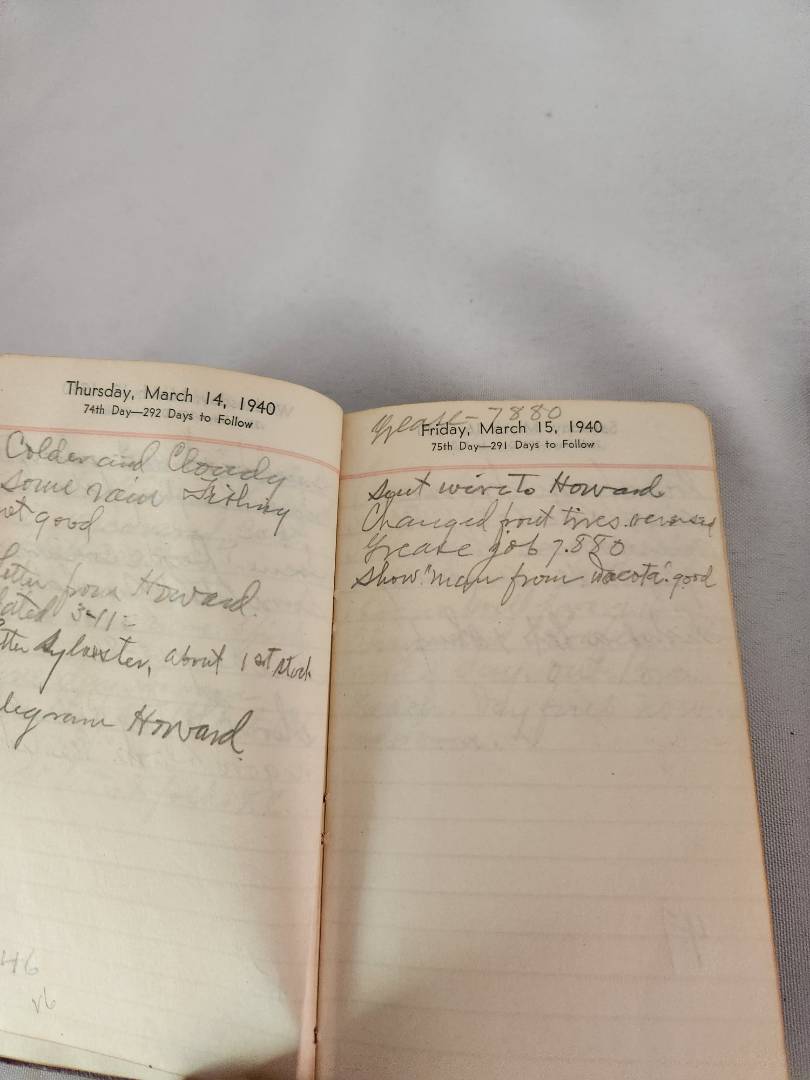 Thursday, March 14, 1940
74th Day—292 Days to Follow
Colder and Cloudy
some rain Fishing
not good
letter from Howard.
dated 3-11-
letter Sylvester, about 1st stock
legram Howard.
46
Grease - 7880
Friday, March 15, 1940
75th Day—291 Days to Follow
Sent wire to Howard
Changed front tires. reversed
Grease job 7.880
Show "Man from Dacota". good